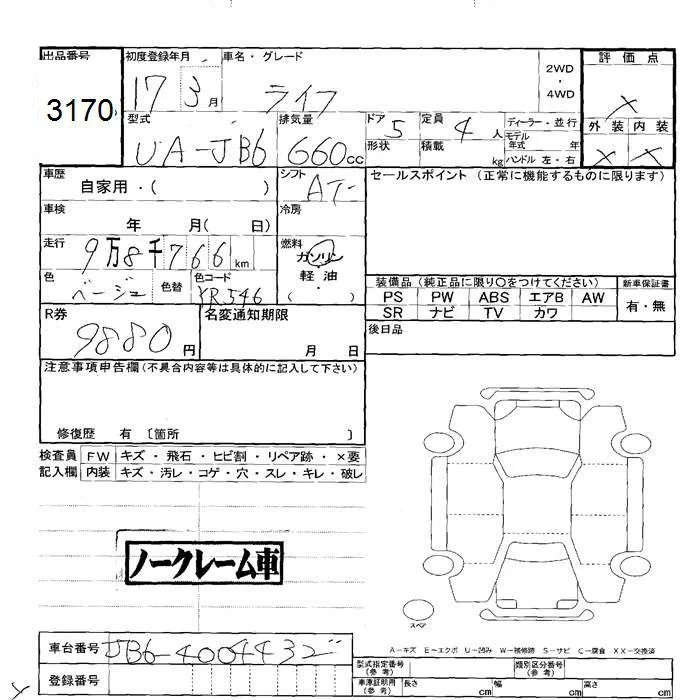 出品番号
3170
初度登録年月
17 3月
車名・グレード
ライフ
2WD
・
4WD
評価点
X
型式
UA-JB6
排気量
660cc
ドア 5
形状
定員 4人
積載 kg
ディーラー・並行
モデル
年式 年
ハンドル 左・右
外装 内装
X X
車歴
自家用・( )
シフト
AT
セールスポイント (正常に機能するものに限ります)
車検
年 月( 日)
冷房
走行
9万8千766km
燃料
ガソリン
軽油
( ・ )
色
ベージュ
色替
色コード
YR546
装備品 (純正品に限り○をつけてください)
PS PW ABS エアB AW
SR ナビ TV カワ
新車保証書
有・無
R券
9880円
名変通知期限
月 日
後日品
注意事項申告欄(不具合内容等は具体的に記入して下さい)
修復歴 有 〔箇所 〕
検査員 FW キズ・飛石・ヒビ割・リペア跡・×要
記入欄 内装 キズ・汚レ・コゲ・穴・スレ・キレ・破レ
ノークレーム車
スペア
A-キズ E-エクボ U-凹み W-補修跡 S-サビ C-腐食 XX-交換済
車台番号
JB6-4004432
登録番号
型式指定番号
(参考)
類別区分番号
(参考)
車庫証明用
(参考)
長さ cm 幅 cm 高さ cm